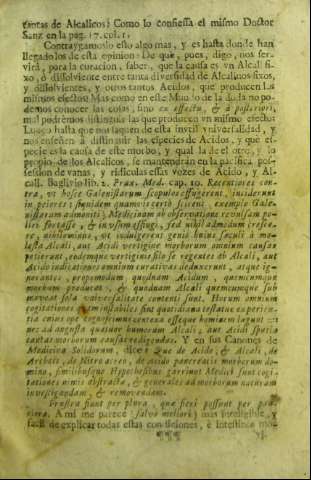 tantas de Alcalicos? Como lo confiessa el mismo Doctor
Sanz en la pag. 17. col. 1.
Contraygamoslo esto algo mas, y es hasta donde han
llegado los de esta opinion: De que, pues, digo, nos ser-
virá, para la curacion, saber, que la causa es vn Alcali fi-
xo, ò dissolviente entre tanta diversidad de Alcalinos fixos,
y dissolvientes, y otros tantos Acidos, que producen los
mismos efectos? Mas como en este Mundo de la duda no po-
demos conocer las cosas, sino ex effectu, & à posteriori,
mal podrèmos distinguir las que producen vn mismo efecto:
Luego hasta que nos saquen de esta inutil vniversalidad, y
nos enseñen à distinguir las especies de Acidos, y que es-
pecie es la causa de este morbo, y qual la del otro, y lo
propio de los Alcalicos, se mantendrán en la pacifica pos-
session de vanas, y ridiculas essas vozes de Acido, y Al-
cali. Baglivio lib. 2. Prax. Med. cap. 10. Recentiores con-
tra, vt hosce Galenistarum scopulos effugerent, inciderunt
in peiores; siquidem quamvis certò scirent, exemplo Gale-
nistarum admoniti, Medicinam ab observatione revulsam po-
fuisse, & in vsum effugi, sed nihil admodum cresce-
re, nihilominus, vt indulgerent genio huius sæculi à mo-
lesta Alcali, aut Acidi vertigine morborum omnium causas
petierunt, eodemque vertiginis filo se regentes ab Alcali, aut
Acido indicationes omnium curativas deduxerunt, at que ig-
norantes, propemodum quodnam Acidum, quemcumque
morbum producat, & quodnam Alcali quemcumque sub-
moveat sola vniversalitate contenti sunt. Horum omnium
cogitationes
tantas morborum causas redigendas. Y en sus Canones de
Medicina Solidorum, dice: Qui de Acido, & Alcali, de
Archeis, de Nitro aereo, de acido pancreatis morborum do-
mino, similibusque Hypothesibus garriunt Medici sunt cogi-
tationes nimis abstractæ, & generales ad morborum naturam
investigandam, & removendam.
Frustra fiunt per plura, quæ fieri possunt per pau-
ciora. A mi me parece (salvo meliori) mas inteligible, y
facil de explicar todas estas confusiones, è intestino mo-
¶¶¶ vi-